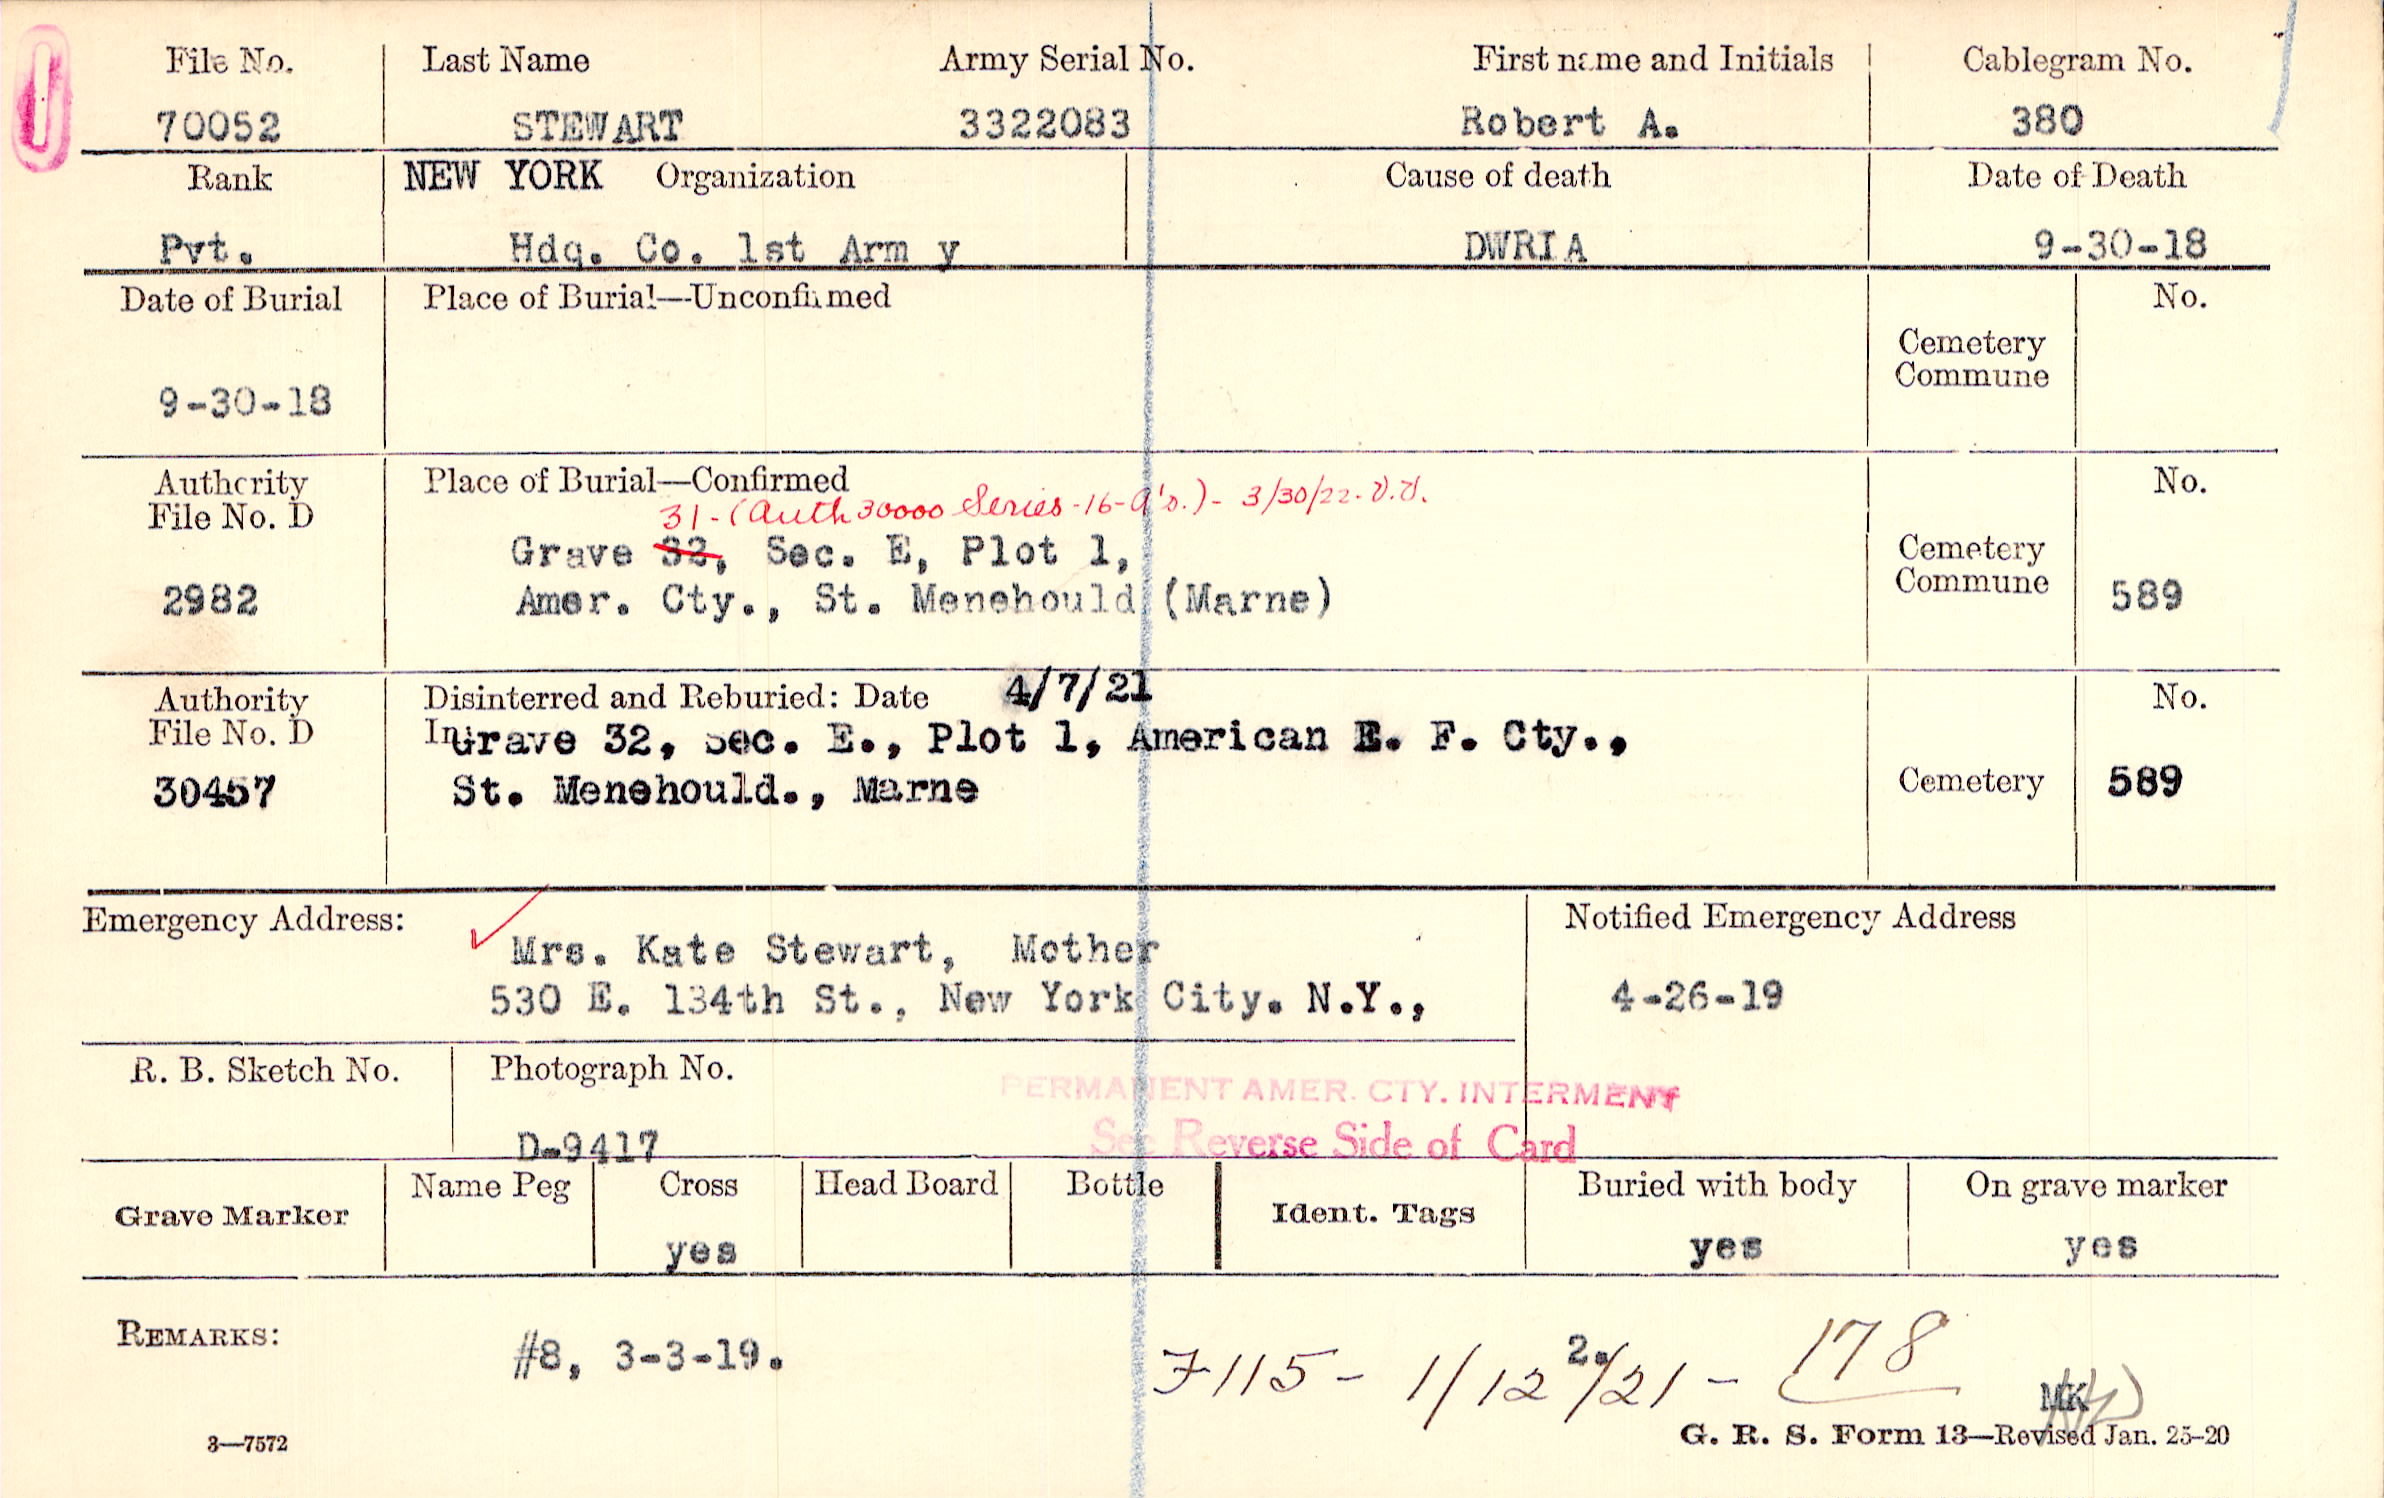 File No. Last Name Army Serial No. First name and Initials Cablegram No.
70052 STEWART 3322083 Robert A. 380
Rank NEW YORK Organization Cause of death Date of Death
Pvt. Hdq. Co. 1st Arm y DWRIA 9-30-18
Date of Burial Place of Burial—Unconfirmed No.
Cemetery
Commune
9-30-18
Authority Place of Burial—Confirmed No.
File No. D 31-(Auth 30000 Series-16-A's.)- 3/30/22.
Grave 32, Sec. E, Plot 1, Cemetery
2982 Amer. Cty., St. Menehould (Marne) Commune 589
Authority Disinterred and Reburied: Date 4/7/21 No.
File No. D In Grave 32, Sec. E., Plot 1, American E. F. Cty.,
30457 St. Menehould., Marne Cemetery 589
Emergency Address: Notified Emergency Address
Mrs. Kate Stewart, Mother
530 E. 134th St., New York City. N.Y., 4-26-19
R. B. Sketch No. Photograph No.
PERMANENT AMER. CTY. INTERMENT
D-9417 See Reverse Side of Card
Grave Marker Name Peg Cross Head Board Bottle Ident. Tags Buried with body On grave marker
yes yes yes
REMARKS: #8, 3-3-19. F115- 1/12/21- 178
2.
MK
3—7572 G. R. S. Form 13—Revised Jan. 25-20